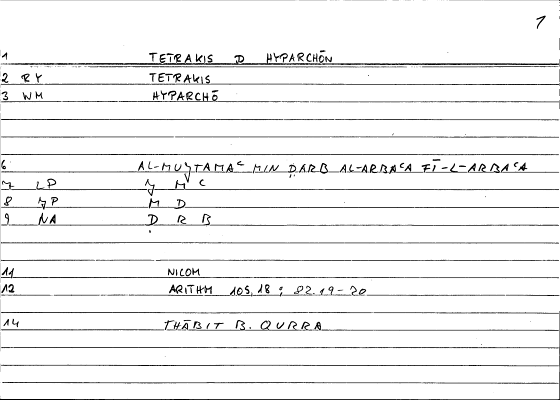 1
1 TETRAKIS D HYPARCHŌN
2 RY TETRAKIS
3 WM HYPARCHŌ
6 AL-MUǦTAMAᶜ MIN ḌARB AL-ARBAᶜA FĪ-L-ARBAᶜA
7 LP Ǧ M ᶜ
8 ǦP M D
9 NA Ḍ R B
11 NICOM
12 ARITHM 105,18 ; 82.19-20
14 THĀBIT B. QURRA